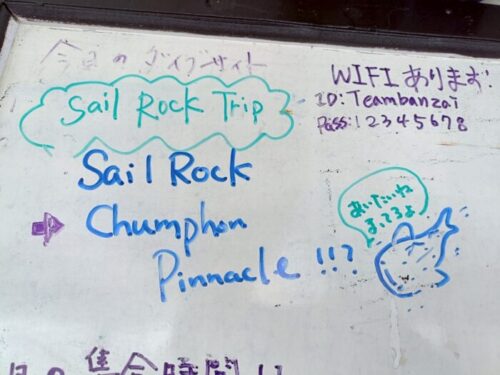 今日のダイブサイト
Sail Rock Trip
WIFIあります!
ID: Teambanzai
Pass: 12345678
Sail Rock
⇨ Chumphon
Pinnacle!!?
まってるよ
集合時間は